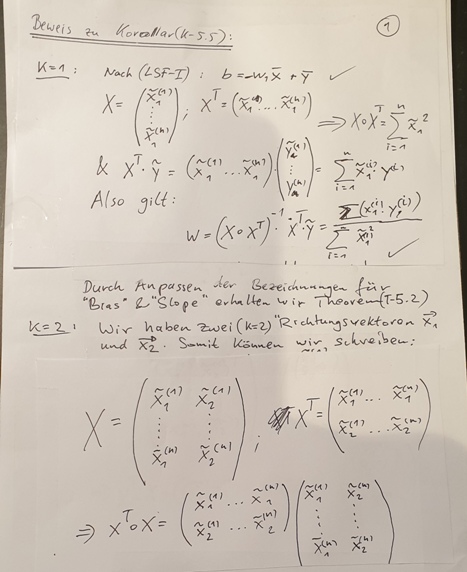 ①
Beweis zu Korollar (K-5.5):
K=1: Nach (LSF-I): b = -w₁x̄ + ȳ ✓
X = (x̃₁⁽¹⁾ ⋮ x̃₁⁽ⁿ⁾); Xᵀ = (x̃₁⁽¹⁾ ... x̃₁⁽ⁿ⁾) ⇒ XᵀoX = Σᵢ₌₁ⁿ x̃₁²
& Xᵀ·ỹ = (x̃₁⁽¹⁾ ... x̃₁⁽ⁿ⁾) (ỹ⁽¹⁾ ⋮ ỹ⁽ⁿ⁾) = Σᵢ₌₁ⁿ x̃₁⁽ⁱ⁾ y⁽ⁱ⁾
Also gilt:
W = (XoXᵀ)⁻¹·Xᵀ·ỹ = Σ(x̃₁⁽ⁱ⁾·y⁽ⁱ⁾) / Σᵢ₌₁ x̃₁² ✓
Durch Anpassen der Bezeichnungen für
"Bias" & "Slope" erhalten wir Theorem (T-5.2)
K=2: Wir haben zwei (k=2) "Richtungsvektoren x₁
und x₂. Somit können wir schreiben:
X = (x̃₁⁽¹⁾ x̃₂⁽¹⁾ ⋮ ⋮ x̃₁⁽ⁿ⁾ x̃₂⁽ⁿ⁾); Xᵀ = (x̃₁⁽¹⁾ ... x̃₁⁽ⁿ⁾ x̃₂⁽¹⁾ ... x̃₂⁽ⁿ⁾)
⇒ XᵀoX = (x̃₁⁽¹⁾ ... x̃₁⁽ⁿ⁾ x̃₂⁽¹⁾ ... x̃₂⁽ⁿ⁾) (x̃₁⁽¹⁾ x̃₂⁽¹⁾ ⋮ ⋮ x̃₁⁽ⁿ⁾ x̃₂⁽ⁿ⁾)